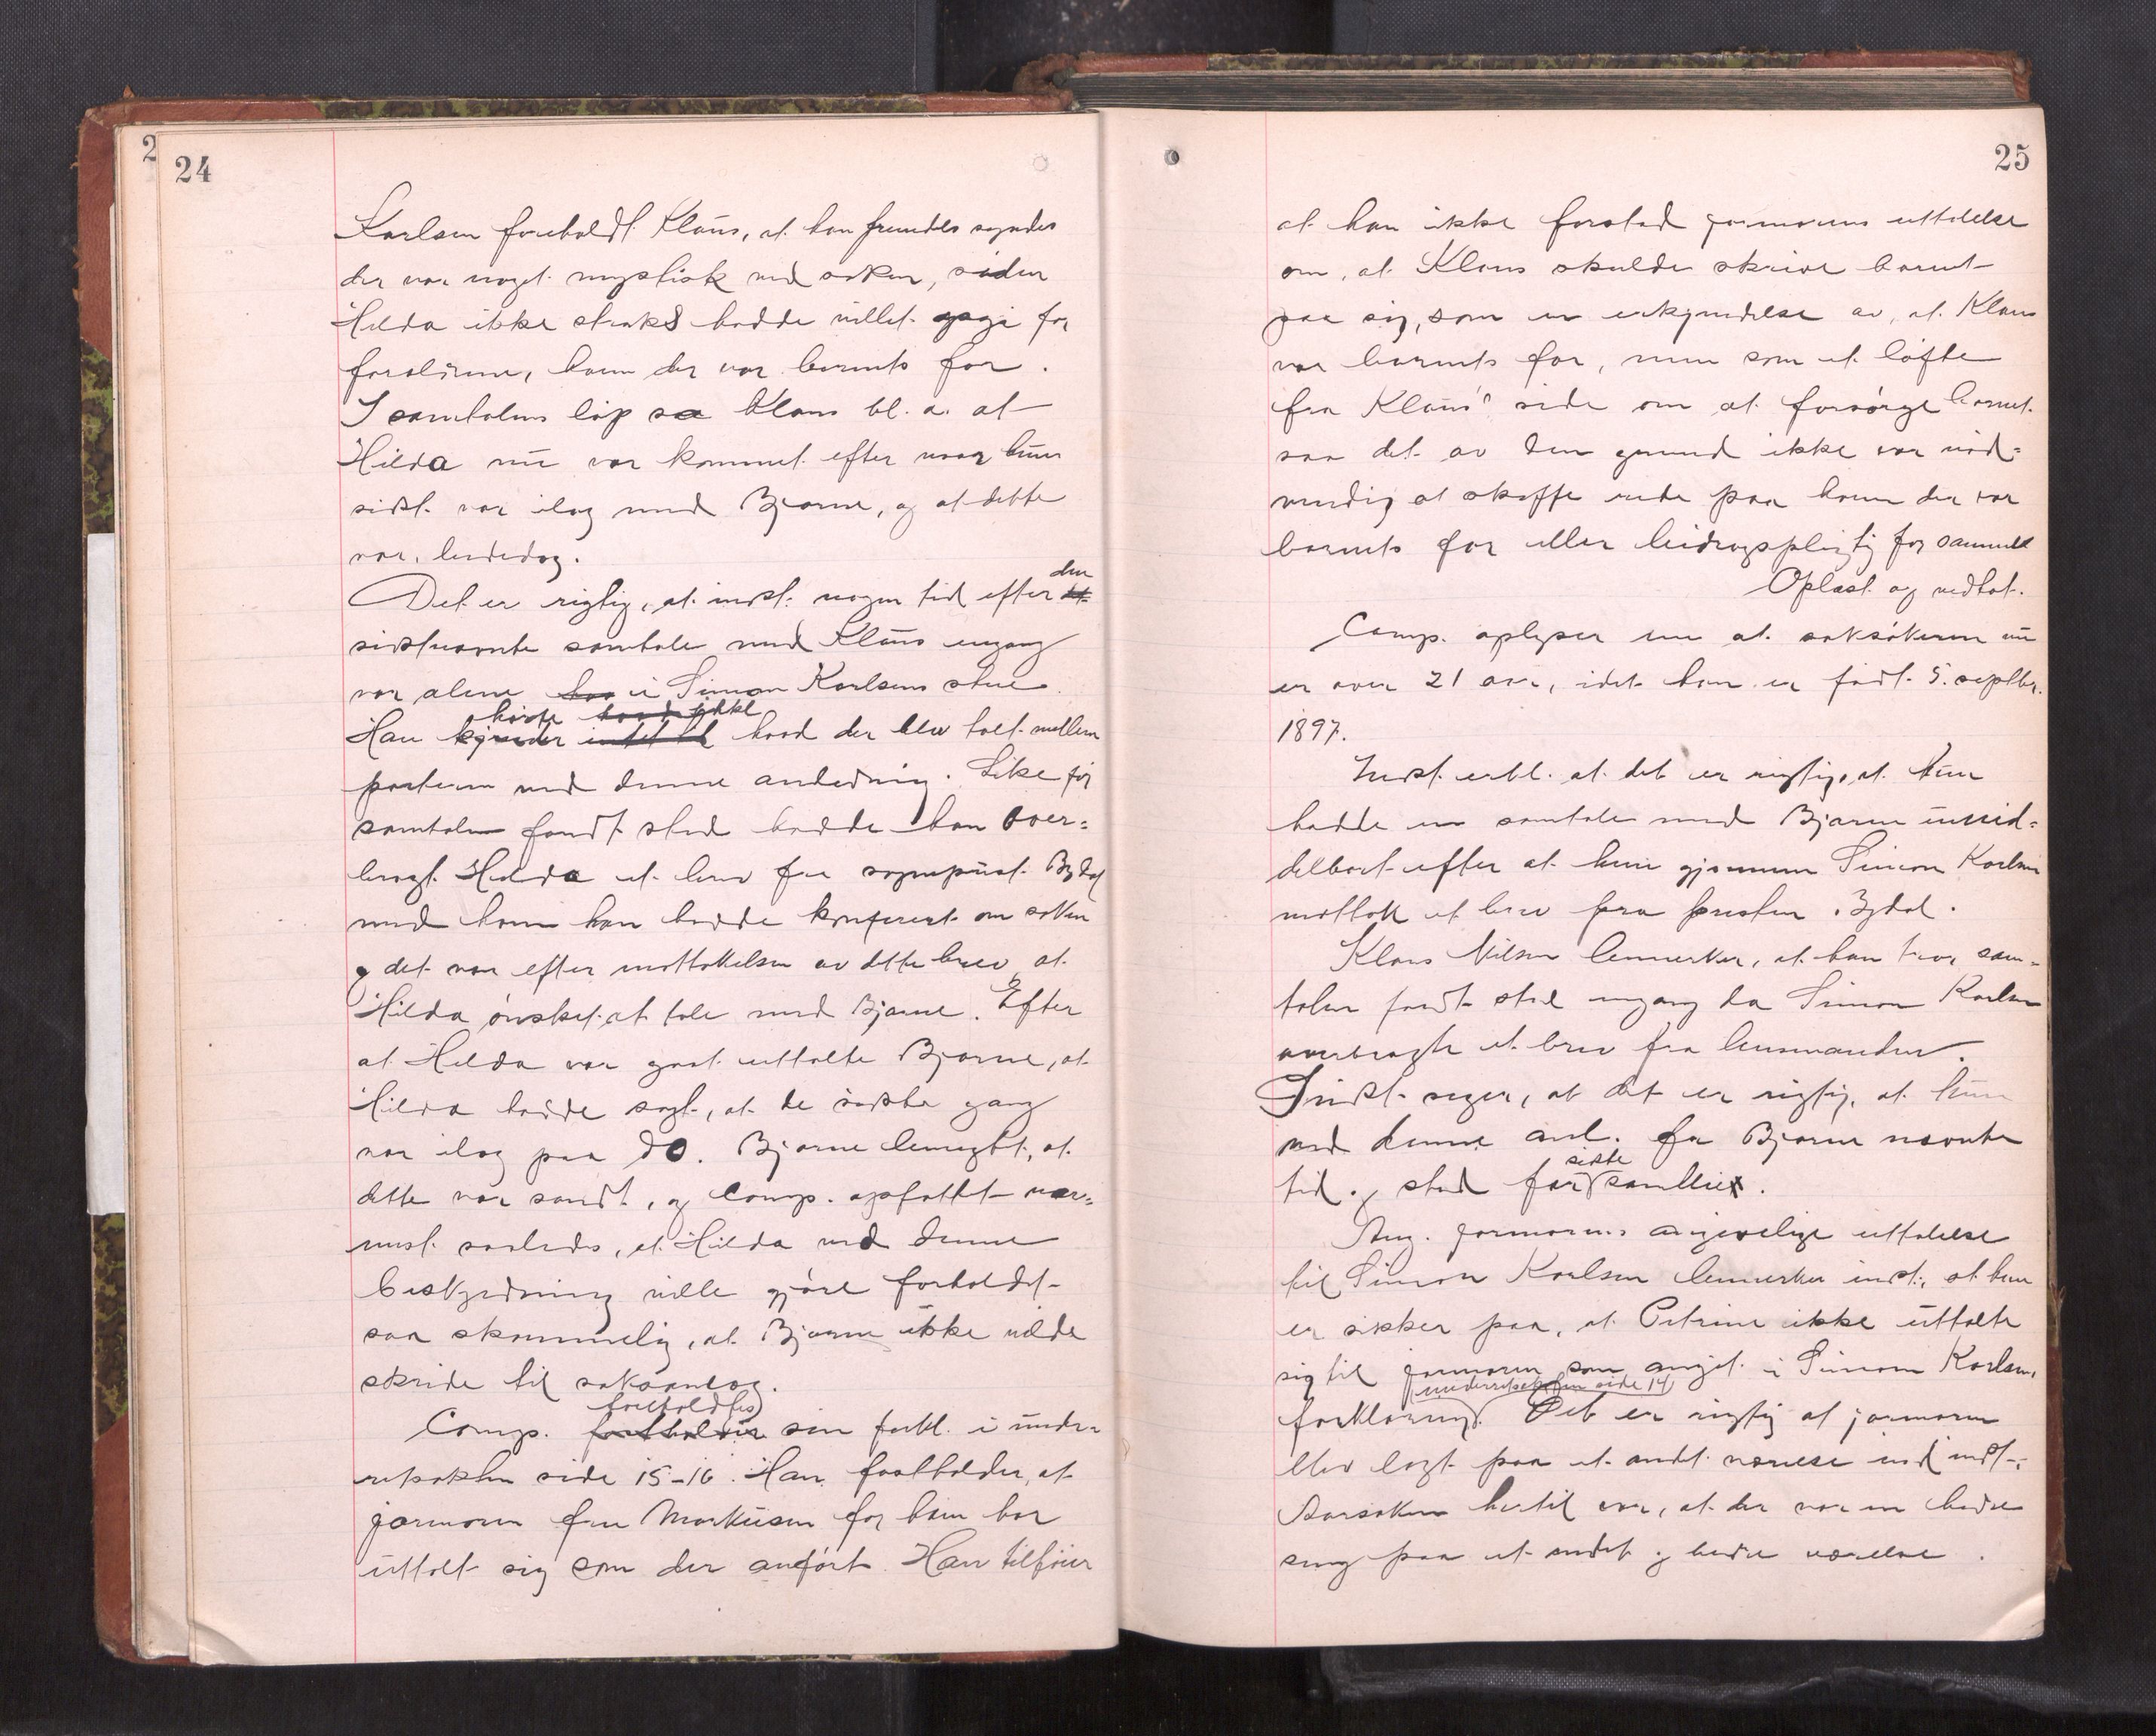 2
24
Karlsen foreholdt Klaus, at han fremdeles syntes
der var noget mystisk ved saken, siden
Hilda ikke straks hadde villet opgi for
forældrene, hvem der var barnets far.
I samtalens løp sa Klaus bl. a. at
Hilda nu var kommet efter naar hun
sidst var ilag med Bjarne, og at dette
var
Det er rigtig, at indst. nogen tid efter den
sidstnævnte samtale med Klaus engang
var alene i Simon Karlsens stue.
Han hørte ikke hvad der blev talt mellem
parterne ved denne anledning. Like før
samtalen fandt sted hadde han over=
bragt Hilda et brev fra sogneprest Bydal
med hvem han hadde konferert om saken
og det var efter mottakelsen av dette brev, at
Hilda ønsket at tale med Bjarne. Efter
at Hilda var gaat uttalte Bjarne, at
Hilda hadde sagt, at de sidste gang
var ilag paa do. Bjarne benegtet, at
dette var sandt, og Comp. opfattet nær=
mest saaledes, at Hilda ved denne
beskyldning vilde gjøre forholdet
saa skammelig, at Bjarne ikke vilde
skride til saksanlæg.
Comp. foreholdtes sin forkl. i under=
retsakten side 15-16. Han fastholder, at
jormoren fru Markusen for ham har
uttalt sig som der anført. Han tilføier
25
at han ikke forstod jormorens uttalelse
om, at Klaus skulde skrive barnet
paa sig, som en erkjendelse av, at Klaus
var barnets far, men som et løfte
fra Klaus' side om at forsørge barnet
saa det av den grund ikke var nød=
vendig at skaffe rede paa hvem der var
barnets far eller bidragspligtig for samme
Oplæst og vedtat.
Comp. oplyser nu at saksøkeren nu
er over 21 aar, idet han er født 5. septbr.
1897.
Indst. erkl. at det er rigtig, at hun
hadde en samtale med Bjarne umid=
delbart efter at hun gjennem Simon Karlsen
mottok et brev fra presten Bydal.
Klaus Nilsen bemerker, at han tror sam=
talen fandt sted engang da Simon Karlsen
overbragte et brev fra lensmanden.
Indst. siger, at det er rigtig, at hun
ved denne anl. for Bjarne nævnte
tid og sted for siste samleie.
Ang. jormorens angivelige uttalelse
til Simon Karlsen bemerker indst., at hun
er sikker paa, at Petrine ikke uttalte
sig til jormoren som angit i Simon Karlsens
forklaring (underretsakten side 14). Det er rigtig at jormoren
blev lagt paa et andet værelse end indst.
Aarsaken hertil var, at der var en bedre
seng paa et andet og bedre værelse.